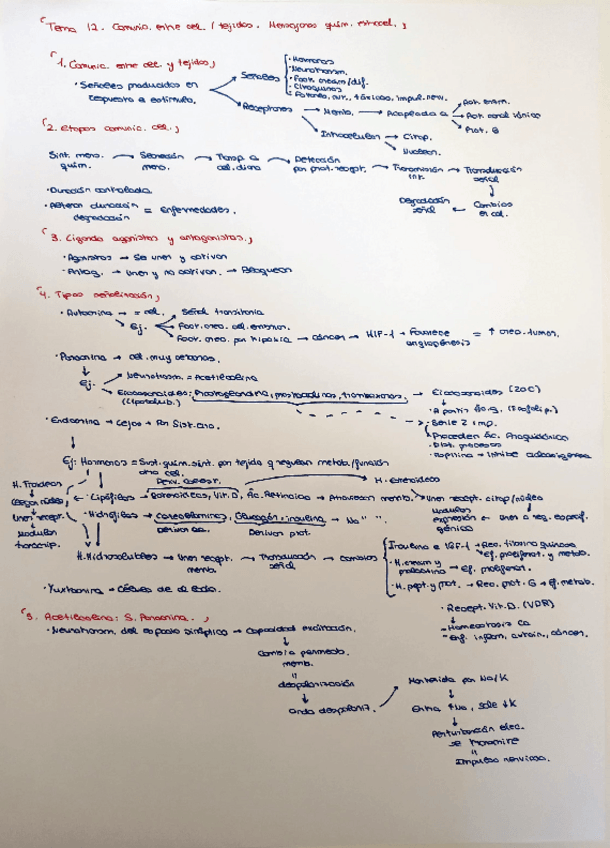 Tema 12. Comunic. entre cel. / tejidos. Mensajeros quím. extracel.
1. Comunic. entre cel. y tejidos
· Señales producidas en respuesta a estímulo.
Señales
· Hormonas
· Neurotransm.
· Fact. crecim/dif.
· Citoquinas
Receptores → Memb. → Acoplado a
Act. enzim.
Act. canal iónico
Prot. G
Intracelular → Citop.
Nuclear.
2. Etapas comunic. cel.
Sínt. mens. quím. → Secreción mens. → Transp. a cel. diana → Detección por prot. recept. → Transmisión int. → Transducción señal
Cambios en cel.
Degradación señal
· Duración controlada.
· Alteran duración = Enfermedades.
degradación
3. Ligando agonistas y antagonistas
· Agonistas → Se unen y activan
· Antag. → Unen y no activan. → Bloquean
4. Tipos señalización
· Autocrina → = cel.
Ej.
Señal transitoria
Fact. crec. cel. embrion.
Fact. crec. por hipoxia → cáncer → HIF-1 → Favorece angiogénesis = ↑ crec. tumor.
· Paracrina → cel. muy cercanas.
Ej.
Neurotransm. = Acetilcolina
Eicosanoides: Prostaglandina, prostaciclinas, tromboxanos → Eicosanoides (20C)
(Liposolub.)
· Serie 2 imp.
Proceden Ác. Araquidónico
· Dist. procesos
· Endocrina → Lejos → Por Sist. circ.
Ej: Hormonas = Sust. quím. sint. por tejido q regulan metab/función otra cel.
H. Tiroideas
Unen recept.
Modulan transcrip.
Lipófilas → Esteroideas, Vit. D, Ác. Retinoico → Atraviesan memb. → Unen recept. citop/núcleo
H. esteroideas
Modulan expresión génica ← Unen a seg. específ.
Hidrófilas → Catecolaminas, Glucagón, insulina → No " ".
Derivan aa. Derivan prot.
H. Hidrosolubles → Unen recept. memb. → Transducción señal → Cambios
Insulina e IGF-1 → Rec. tirosina quinasa
Ef. proliferat. y metab.
· H. crecim y prolactina → Ef. proliferat.
· H. pept. y prot. → Rec. prot. G → Ef. metab.
· Yuxtacrina → Célula de al lado.
· Recept. Vit. D. (VDR)
- Homeostasis Ca
- Enf. inflam, autoin., cáncer.
5. Acetilcolina: S. Paracrina.
· Neurotransm. del espacio sináptico → Capacidad excitación.
Cambia permeab. memb.
=
despolarización
Onda despolariz.
Mantenida por Na/K
Entra ↑Na, sale ↓K
Perturbación elec. se transmite
=
Impulso nervioso.